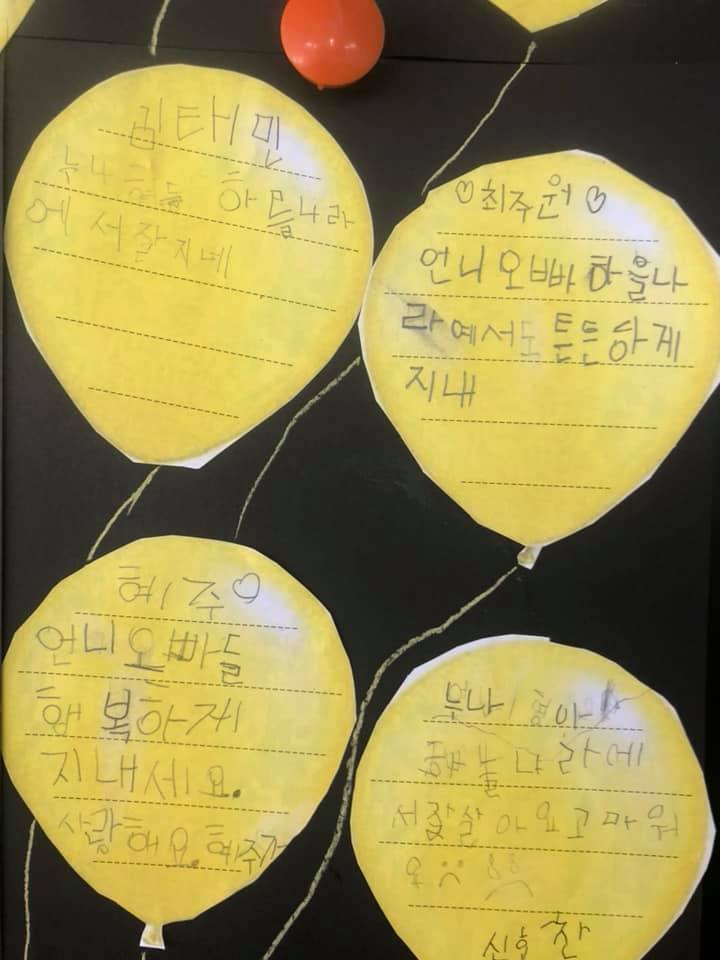 김태민
누나 형들 하믈나라
에서 잘지네
♡최주원♡
언니오빠하울나
라에서도 튼튼하게
지내
혜주♡
언니오빠들
행복하게
지내세요.
사랑해요. 혜주가
누나 형아
하늘나라에
서 잘살아요고마워
요
신호찬